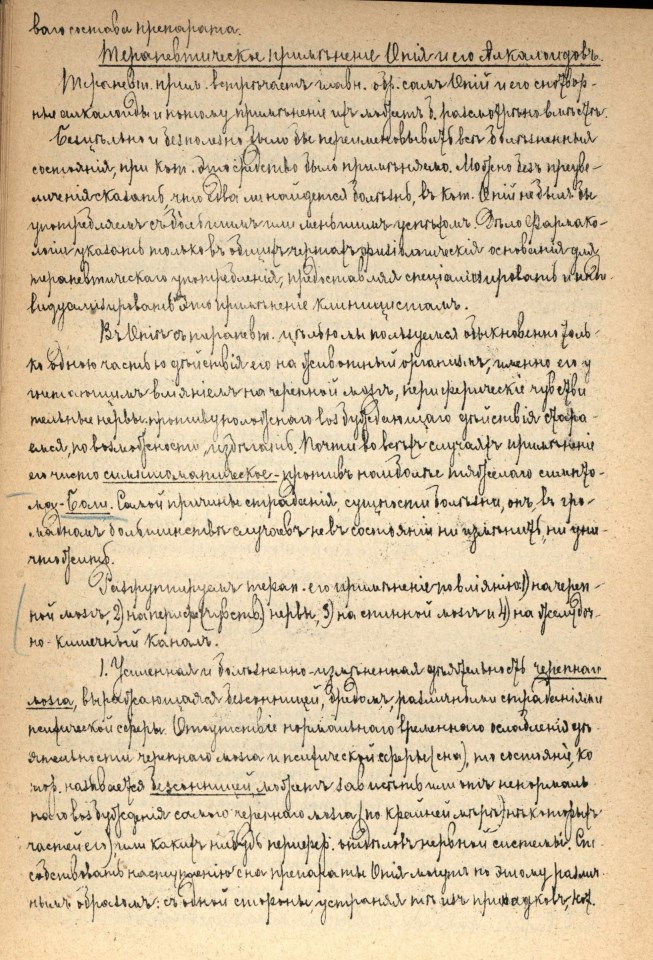 ваго состава препарата.
Терапевтическое примѣненіе Опія и его Алкалоидовъ.
Терапевт. прим. встрѣчаетъ главн. обр. самъ Опій и его снотвор-
ные алкалоиды и потому примѣненіе ихъ можетъ б. разсмотрѣно вмѣстѣ.
Безцѣльно и безполезно было бы переименовывать всѣ болѣзненныя
состоянія, при кот. это средство было примѣняемо. Можно безъ преуве-
личенія сказать, что едва ли найдется болѣзнь, въ кот. Опій не былъ бы
употребляемъ съ большимъ или меньшимъ успѣхомъ. Дѣло Фармако-
логіи указать только въ общихъ чертахъ физіологическія основанія для
терапевтическаго употребленія, предоставляя спеціализировать и инди-
видуализировать это примѣненіе клиницистамъ.
Въ Опіѣ съ терапевт. цѣлью мы пользуемся обыкновенно толь-
ко одною частью дѣйствія его на животный организмъ, именно его у
гнетающимъ вліяніемъ на черепной мозгъ, периферическіе чувстви
тельные нервы. противуположнаго возбуждающаго дѣйствія стара-
емся, по возможности, избѣгать. Почти во всѣхъ случаяхъ примѣненіе
его чисто симптоматическое - противъ наиболѣе тяжелаго симпто-
ма - боли. Самой причины страданія, сущности болѣзни, онъ, въ гро-
мадномъ большинствѣ случаевъ не въ состояніи ни измѣнить, ни уни-
чтожить.
Разгруппируемъ терап. его примѣненіе по вліянію 1) на череп-
ной мозгъ, 2) на периф. (чувств.) нервы, 3) на спинной мозгъ и 4) на желудоч-
но-кишечный каналъ.
1. Усиленная и болѣзненно-измѣненная дѣятельность черепнаго
мозга, выражающаяся безсонницей, бредомъ, различными страданіями
психической сферы. Отсутствіе нормальнаго временнаго ослабленія дѣ-
ятельности черепнаго мозга и психической сферы (сна), то состояніе, ко
тор. называется безсонницей можетъ зависѣть или отъ ненормаль
наго возбужденія самого черепнаго мозга (по крайней мѣрѣ нѣкоторыхъ
частей его) или какихъ нибудь перифер. отдѣловъ нервной системы. Спо
собствовать наступленію сна препараты Опія могутъ по этому различ-
нымъ образомъ: съ одной стороны, устраняя тѣ изъ припадковъ, кот.